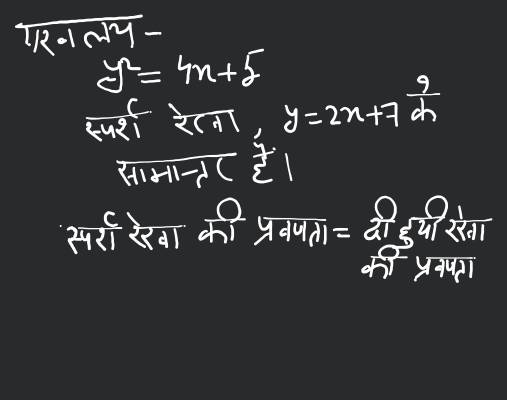 परवलय -
y² = 4x+5
स्पर्श रेखा, y = 2x+7 के
सामान्तर है।
स्पर्श रेखा की प्रवणता = दी हुयी रेखा
की प्रवणता